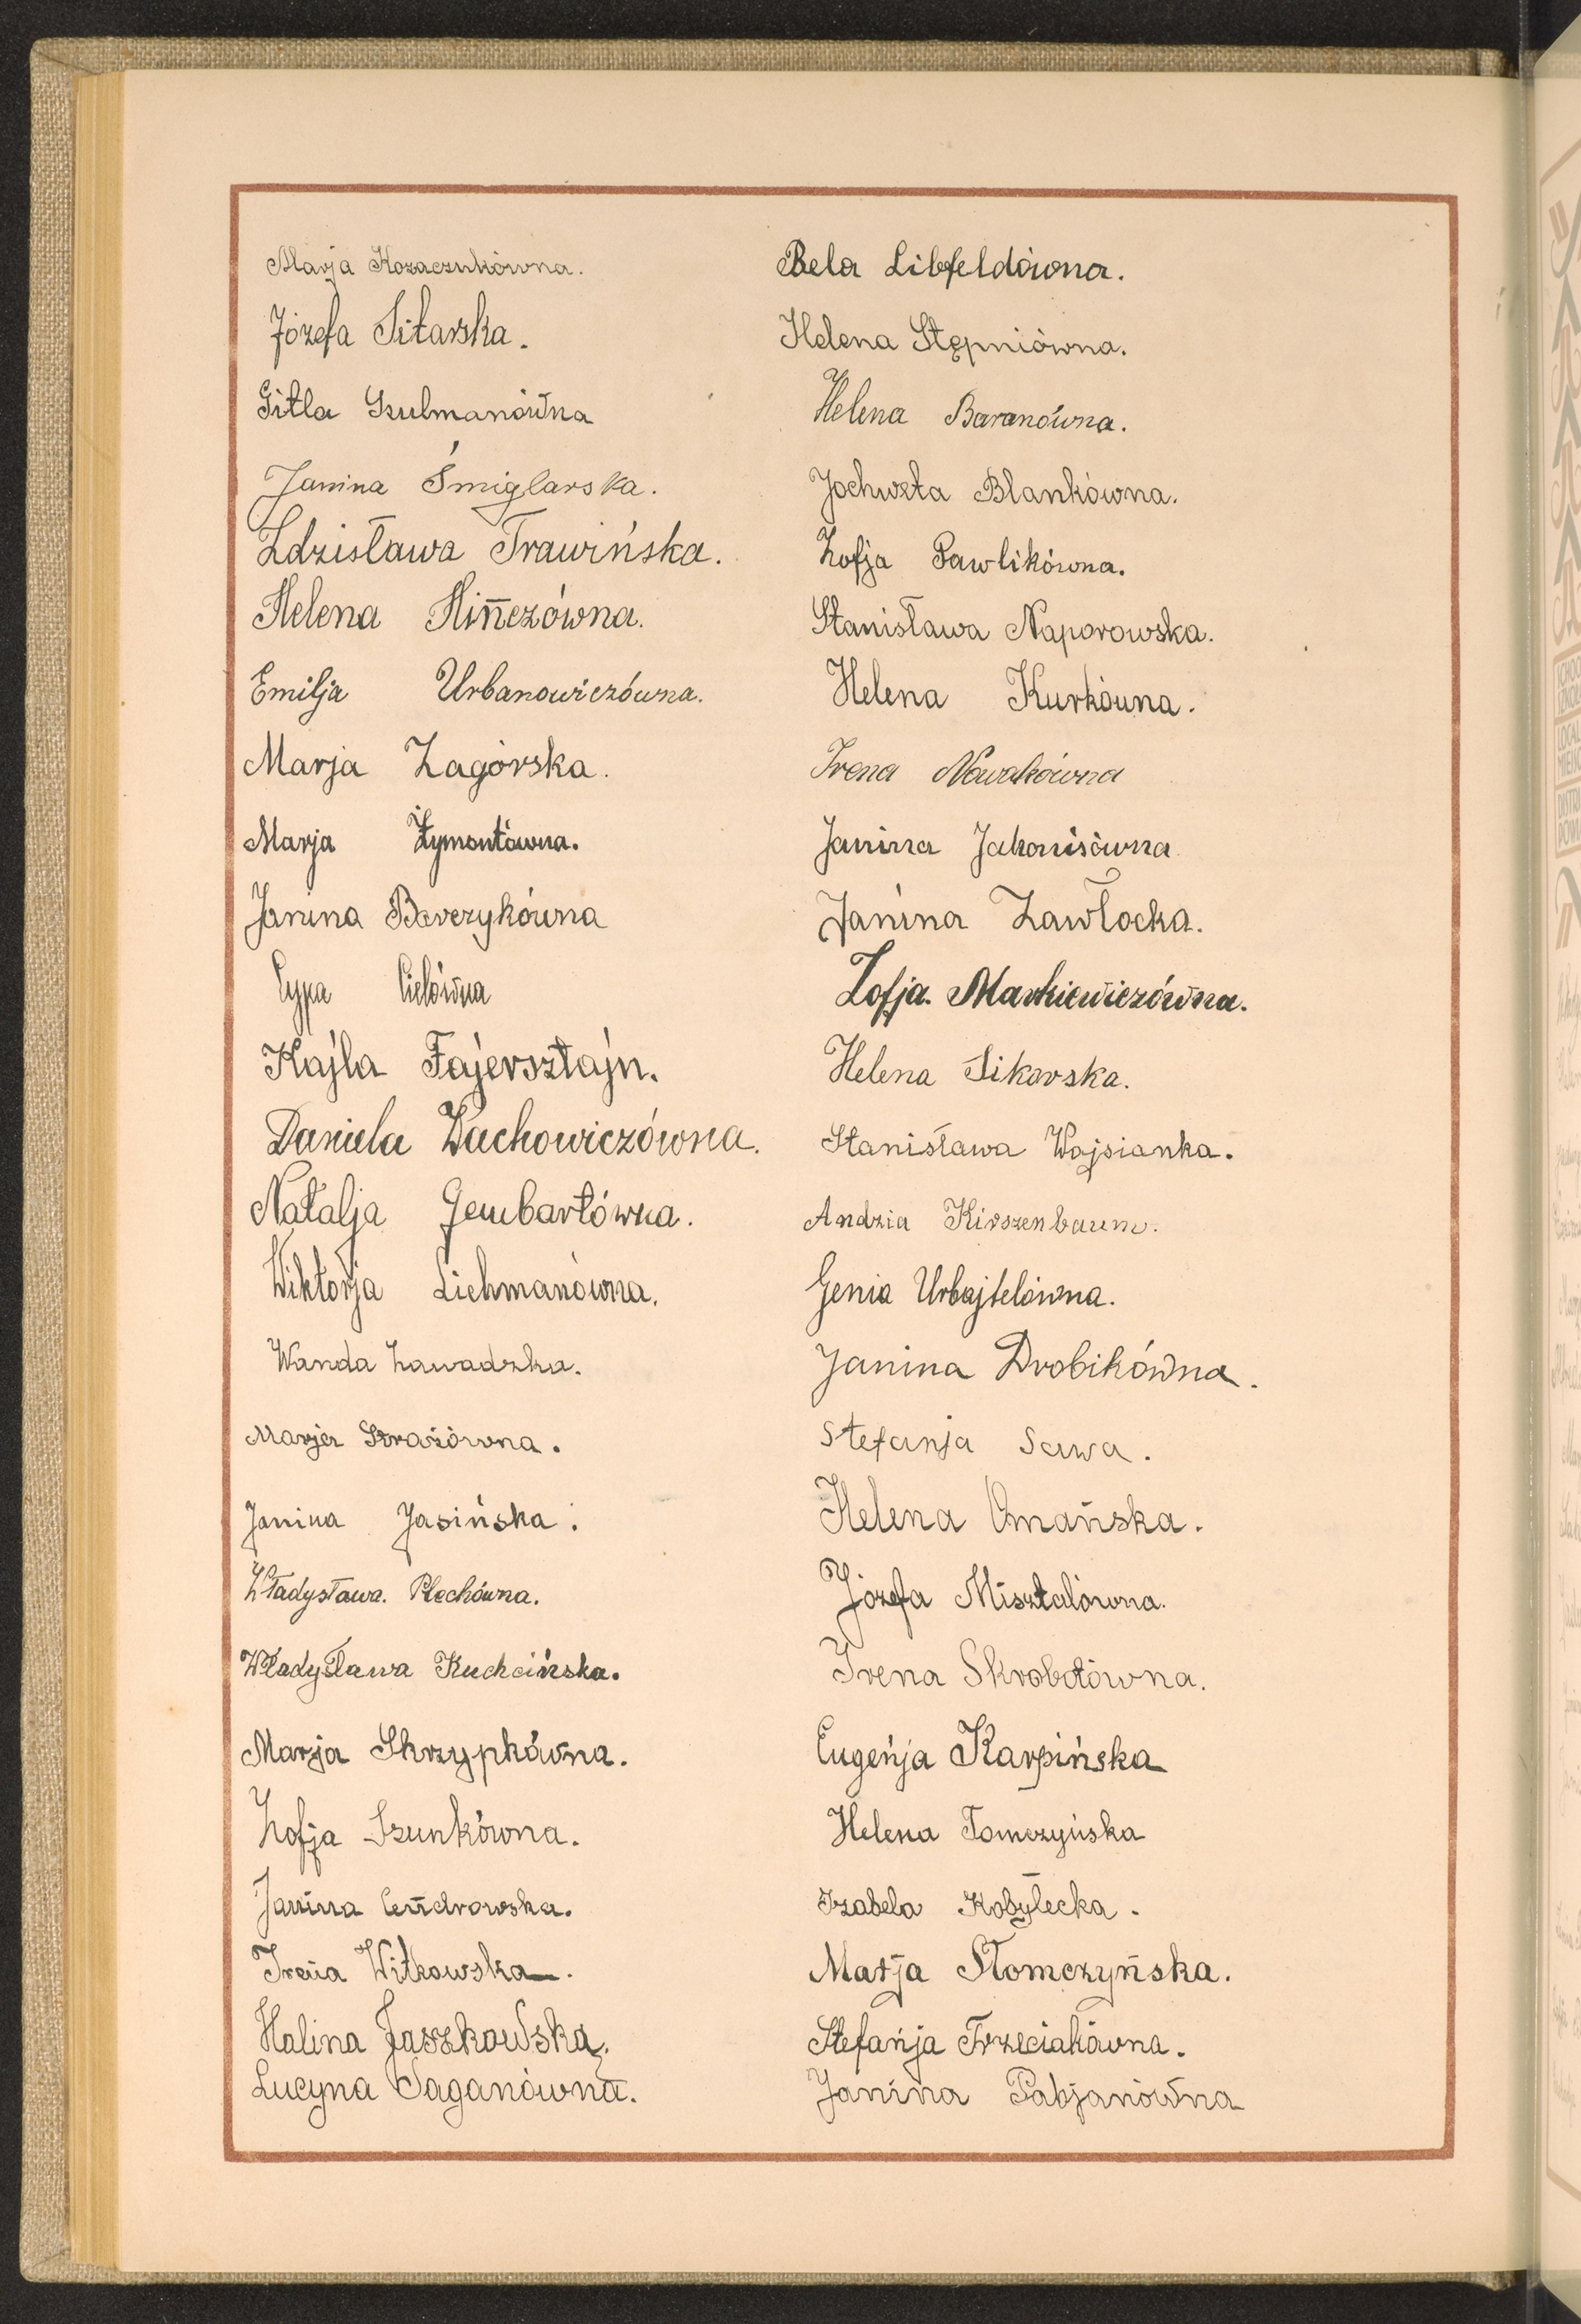 Marja Kozaczukówna.
Józefa Sitarska.
Gitla Szulmanówna
Janina Śmiglarska.
Zdzisława Trawińska.
Helena Hinczówna.
Emilja Urbanowiczówna.
Marja Zagórska.
Marja Żymontówna.
Janina Barczykówna
Cypa Cielówna
Kajla Fajersztajn.
Daniela Wachowiczówna.
Natalja Gembartówna.
Wiktorja Lichmanówna.
Wanda Zawadzka.
Marja Strażówna.
Janina Jasińska.
Władysława. Plechówna.
Władysława Kuchcińska.
Marja Skrzypkówna.
Zofja Szunkówna.
Janina Cendrowska.
Irena Witkowska.
Halina Jaszkowska.
Lucyna Saganówna.
Bela Libfeldówna.
Helena Stępniówna.
Helena Baranówna.
Jochweta Blankówna.
Zofja Pawlikówna.
Stanisława Naporowska.
Helena Kurkówna.
Irena Nowakówna
Janina Jakonisówna
Janina Zawłocka.
Zofja. Markiewiczówna.
Helena Sikorska.
Stanisława Wajsianka.
Andzia Kirszenbaum.
Genia Urbajtelówna.
Janina Drobikówna.
Stefanja Sawa.
Helena Omańska.
Józefa Misztalówna.
Irena Skrobotówna.
Eugenja Karpińska
Helena Tomczyńska
Izabela Kobyłecka.
Marja Słomczyńska.
Stefanja Trzeciakówna.
Janina Pabjanówna